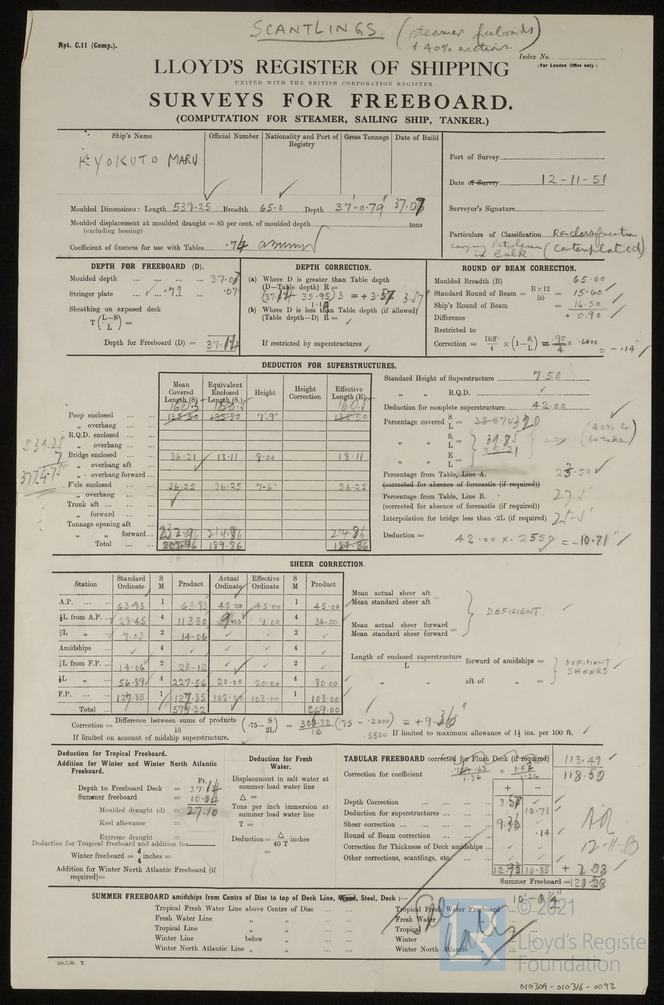 SCANTLINGS. (steamer freeboards
+ 40% erections.)
Rpt. C.11 (Comp.).
Index No.
(For London Office only.)
LLOYD'S REGISTER OF SHIPPING
UNITED WITH THE BRITISH CORPORATION REGISTER
SURVEYS FOR FREEBOARD.
(COMPUTATION FOR STEAMER, SAILING SHIP, TANKER.)
Ship's Name Official Number Nationality and Port of Registry Gross Tonnage Date of Build
KYOKUTO MARU
Port of Survey
Date of Survey 12-11-51
Surveyor's Signature
Particulars of Classification Re-classification
carrying Petroleum in Bulk (contemplated)
Moulded Dimensions: Length 539.25 Breadth 65.0 Depth 37'-0.79" 37.07
Moulded displacement at moulded draught = 85 per cent. of moulded depth tons
(excluding bossing)
Coefficient of fineness for use with Tables .74 assumed
DEPTH FOR FREEBOARD (D).
Moulded depth 37.07
Stringer plate .79 .07
Sheathing on exposed deck
T (L-S / L) =
Depth for Freeboard (D) = 37.14
DEPTH CORRECTION.
(a) Where D is greater than Table depth
(D—Table depth) R =
(37.14 35.95) 3 = + 3.57 3.57
1.19
(b) Where D is less than Table depth (if allowed)
(Table depth—D) R =
If restricted by superstructures
ROUND OF BEAM CORRECTION.
Moulded Breadth (B) 65.00
Standard Round of Beam = B×12 / 50 = 15.60
Ship's Round of Beam = 16.50
Difference + 0.90
Restricted to
Correction = Diff / 4 × (1 - S / L) = .90 / 4 × .6800 = - .14
DEDUCTION FOR SUPERSTRUCTURES.
Mean Covered Length (S) Equivalent Enclosed Length (S₁) Height Height Correction Effective Length (E)
Poop enclosed 135.50 135.50 7'-9" 135.50
" overhang
R.Q.D. enclosed
" overhang
Bridge enclosed 36.21 18.11 8.00 18.11
" overhang aft
" overhang forward
F'cle enclosed 36.25 36.25 7-6" 36.25
" overhang
Trunk aft
" forward
Tonnage opening aft
" " forward 232.96 214.86 214.86
Total 207.96 189.86 189.86
Standard Height of Superstructure 7.50
" " R.Q.D.
Deduction for complete superstructure 42.00
Percentage covered S / L =
" " S₁ / L = 39.85
E / L = 35.21
(40% to be taken)
Percentage from Table, Line A. 23.50
(corrected for absence of forecastle (if required))
Percentage from Table, Line B. 27.5
(corrected for absence of forecastle (if required))
Interpolation for bridge less than ·2L (if required) 25.5
Deduction = 42.00 x .2550 = -10.71"
SHEER CORRECTION.
Station Standard Ordinate S M Product Actual Ordinate Effective Ordinate S M Product
A.P. 63.93 1 63.93 45.00 45.00 1 45.00
⅙L from A.P. 28.45 4 113.80 9.00 9.00 4 36.00
⅓L " 7.03 2 14.06 2
Amidships 4 4
⅓L from F.P. 14.06 2 28.12 2
⅙L " 56.89 4 227.56 20.00 20.00 4 80.00
F.P. 127.85 1 127.85 108.00 108.00 1 108.00
Total 575.32 269.00
Mean actual sheer aft
Mean standard sheer aft =
Mean actual sheer forward
Mean standard sheer forward =
DEFICIENT.
Length of enclosed superstructure / L forward of amidships =
" " aft of " =
DEFICIENT SHEERS
Correction = Difference between sums of products / 18 (·75 - S / 2L) = 306.32 / 18 (.75 - .2000) = + 9.36"
.5500
If limited on account of midship superstructure.
If limited to maximum allowance of 1½ ins. per 100 ft.
Deduction for Tropical Freeboard.
Addition for Winter and Winter North Atlantic Freeboard.
Ft.
Depth to Freeboard Deck = 37.14
Summer freeboard = 10.04
Moulded draught (d) = 27.10
Keel allowance =
Extreme draught =
Deduction for Tropical freeboard and addition for
Winter freeboard = d / 4 inches =
Addition for Winter North Atlantic Freeboard (if required) =
Deduction for Fresh Water.
Displacement in salt water at summer load water line
Δ =
Tons per inch immersion at summer load water line
T =
Deduction = Δ / 40 T inches
=
TABULAR FREEBOARD corrected for Flush Deck (if required) 113.49
Correction for coefficient = 1.42 / 1.36 118.50
+ -
Depth Correction 3.57
Deduction for superstructures 10.71
Sheer correction 9.36
Round of Beam correction .14
Correction for Thickness of Deck amidships
Other corrections, scantlings, etc.
12.93 10.85 + 2.08
Summer Freeboard = 120.58
12-11-50
SUMMER FREEBOARD amidships from Centre of Disc to top of Deck Line, Wood, Steel, Deck :— 10'-0½"
Tropical Fresh Water Line above Centre of Disc
Fresh Water Line " "
Tropical Line " "
Winter Line below "
Winter North Atlantic Line " "
Tropical Fresh Water Freeboard
Fresh Water "
Tropical "
Winter "
Winter North Atlantic "
© 2021
Lloyd's Register
Foundation
010309-010316-0092